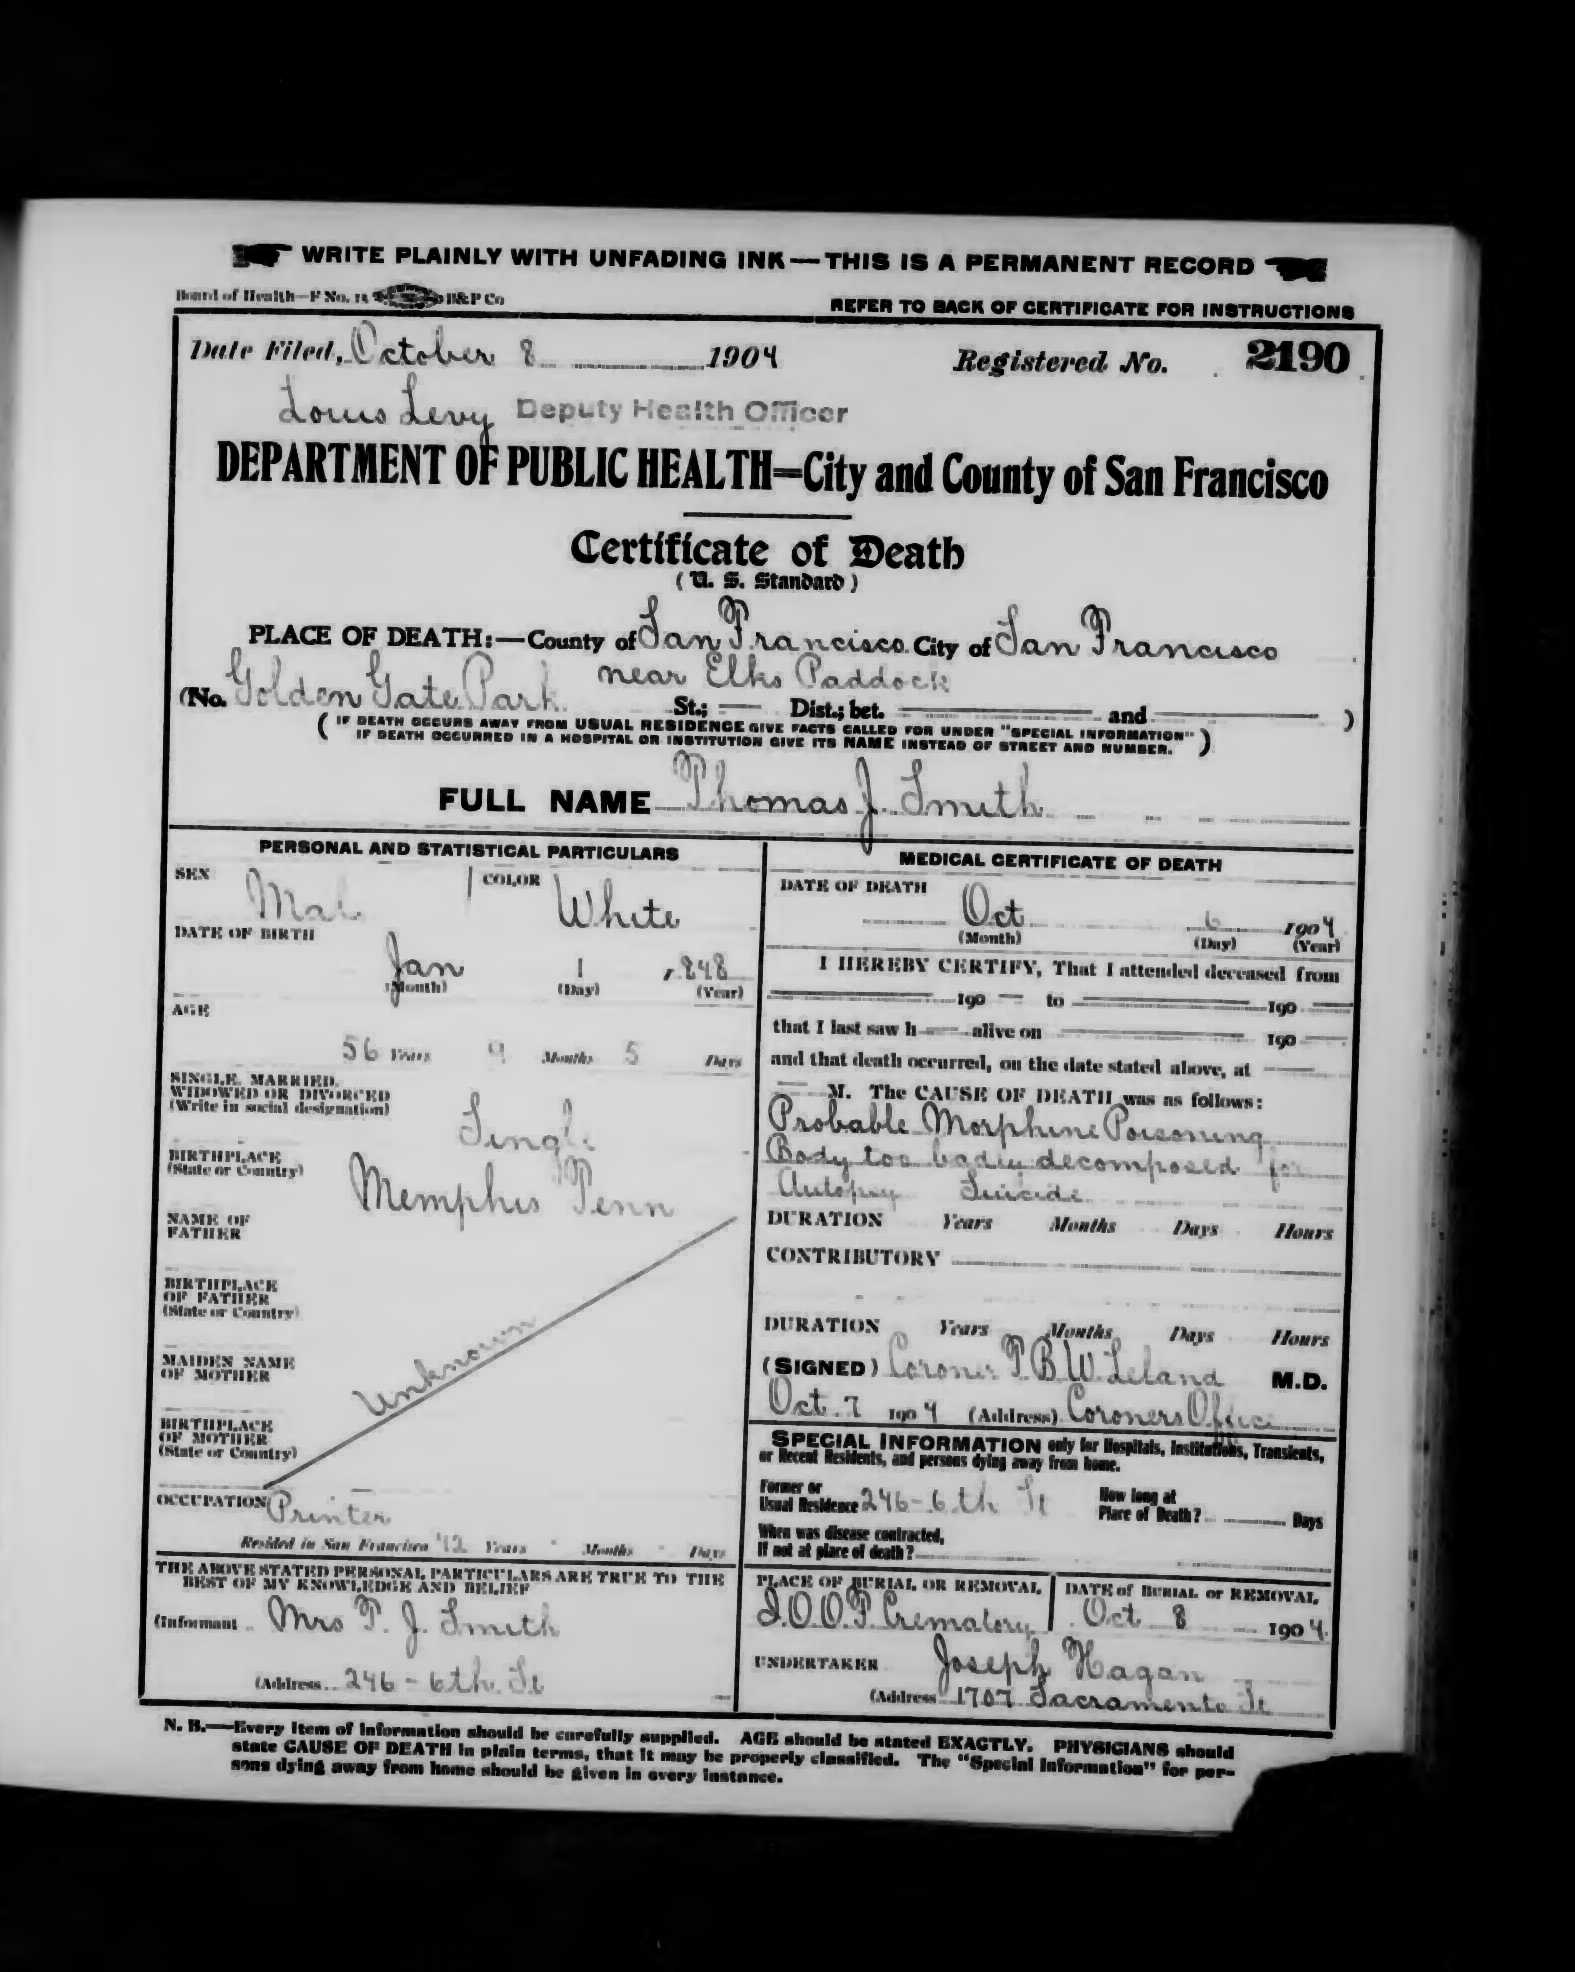 WRITE PLAINLY WITH UNFADING INK—THIS IS A PERMANENT RECORD
Board of Health—F No. B&P Co
REFER TO BACK OF CERTIFICATE FOR INSTRUCTIONS
Date Filed, October 8 1904 Registered No. 2190
Louis Levy Deputy Health Officer
DEPARTMENT OF PUBLIC HEALTH=City and County of San Francisco
Certificate of Death
(U. S. Standard)
PLACE OF DEATH:—County of San Francisco City of San Francisco
near Elks Paddock
(No. Golden Gate Park St.; — Dist.; bet. — and — )
(IF DEATH OCCURS AWAY FROM USUAL RESIDENCE GIVE FACTS CALLED FOR UNDER "SPECIAL INFORMATION"
IF DEATH OCCURRED IN A HOSPITAL OR INSTITUTION GIVE ITS NAME INSTEAD OF STREET AND NUMBER.)
FULL NAME Thomas J. Smith
PERSONAL AND STATISTICAL PARTICULARS
SEX Male COLOR White
DATE OF BIRTH
Jan 1 1848
(Month) (Day) (Year)
AGE
56 Years 9 Months 5 Days
SINGLE, MARRIED,
WIDOWED OR DIVORCED
(Write in social designation)
Single
BIRTHPLACE
(State or Country)
Memphis Tenn
NAME OF
FATHER
BIRTHPLACE
OF FATHER
(State or Country)
MAIDEN NAME
OF MOTHER
Unknown
BIRTHPLACE
OF MOTHER
(State or Country)
OCCUPATION Printer
Resided in San Francisco 12 Years Months Days
THE ABOVE STATED PERSONAL PARTICULARS ARE TRUE TO THE
BEST OF MY KNOWLEDGE AND BELIEF
(Informant Mrs T. J. Smith
(Address 246 - 6th St
MEDICAL CERTIFICATE OF DEATH
DATE OF DEATH
Oct 6 1904
(Month) (Day) (Year)
I HEREBY CERTIFY, That I attended deceased from
— 190 — to — 190 —
that I last saw h — alive on — 190 —
and that death occurred, on the date stated above, at —
— M. The CAUSE OF DEATH was as follows:
Probable Morphine Poisoning
Body too badly decomposed for
Autopsy Suicide
DURATION Years Months Days Hours
CONTRIBUTORY
DURATION Years Months Days Hours
(SIGNED) Coroner T. B. W. Leland M.D.
Oct. 7 1904 (Address) Coroners Office
SPECIAL INFORMATION only for Hospitals, Institutions, Transients,
or Recent Residents, and persons dying away from home.
Former or
Usual Residence 246 - 6th St
How long at
Place of Death? Days
When was disease contracted,
If not at place of death?
PLACE OF BURIAL OR REMOVAL
I.O.O.F. Crematory
DATE of BURIAL or REMOVAL
Oct 8 1904
UNDERTAKER Joseph Hagan
(Address 1707 Sacramento St
N. B.—Every item of information should be carefully supplied. AGE should be stated EXACTLY. PHYSICIANS should
state CAUSE OF DEATH in plain terms, that it may be properly classified. The "Special Information" for per-
sons dying away from home should be given in every instance.